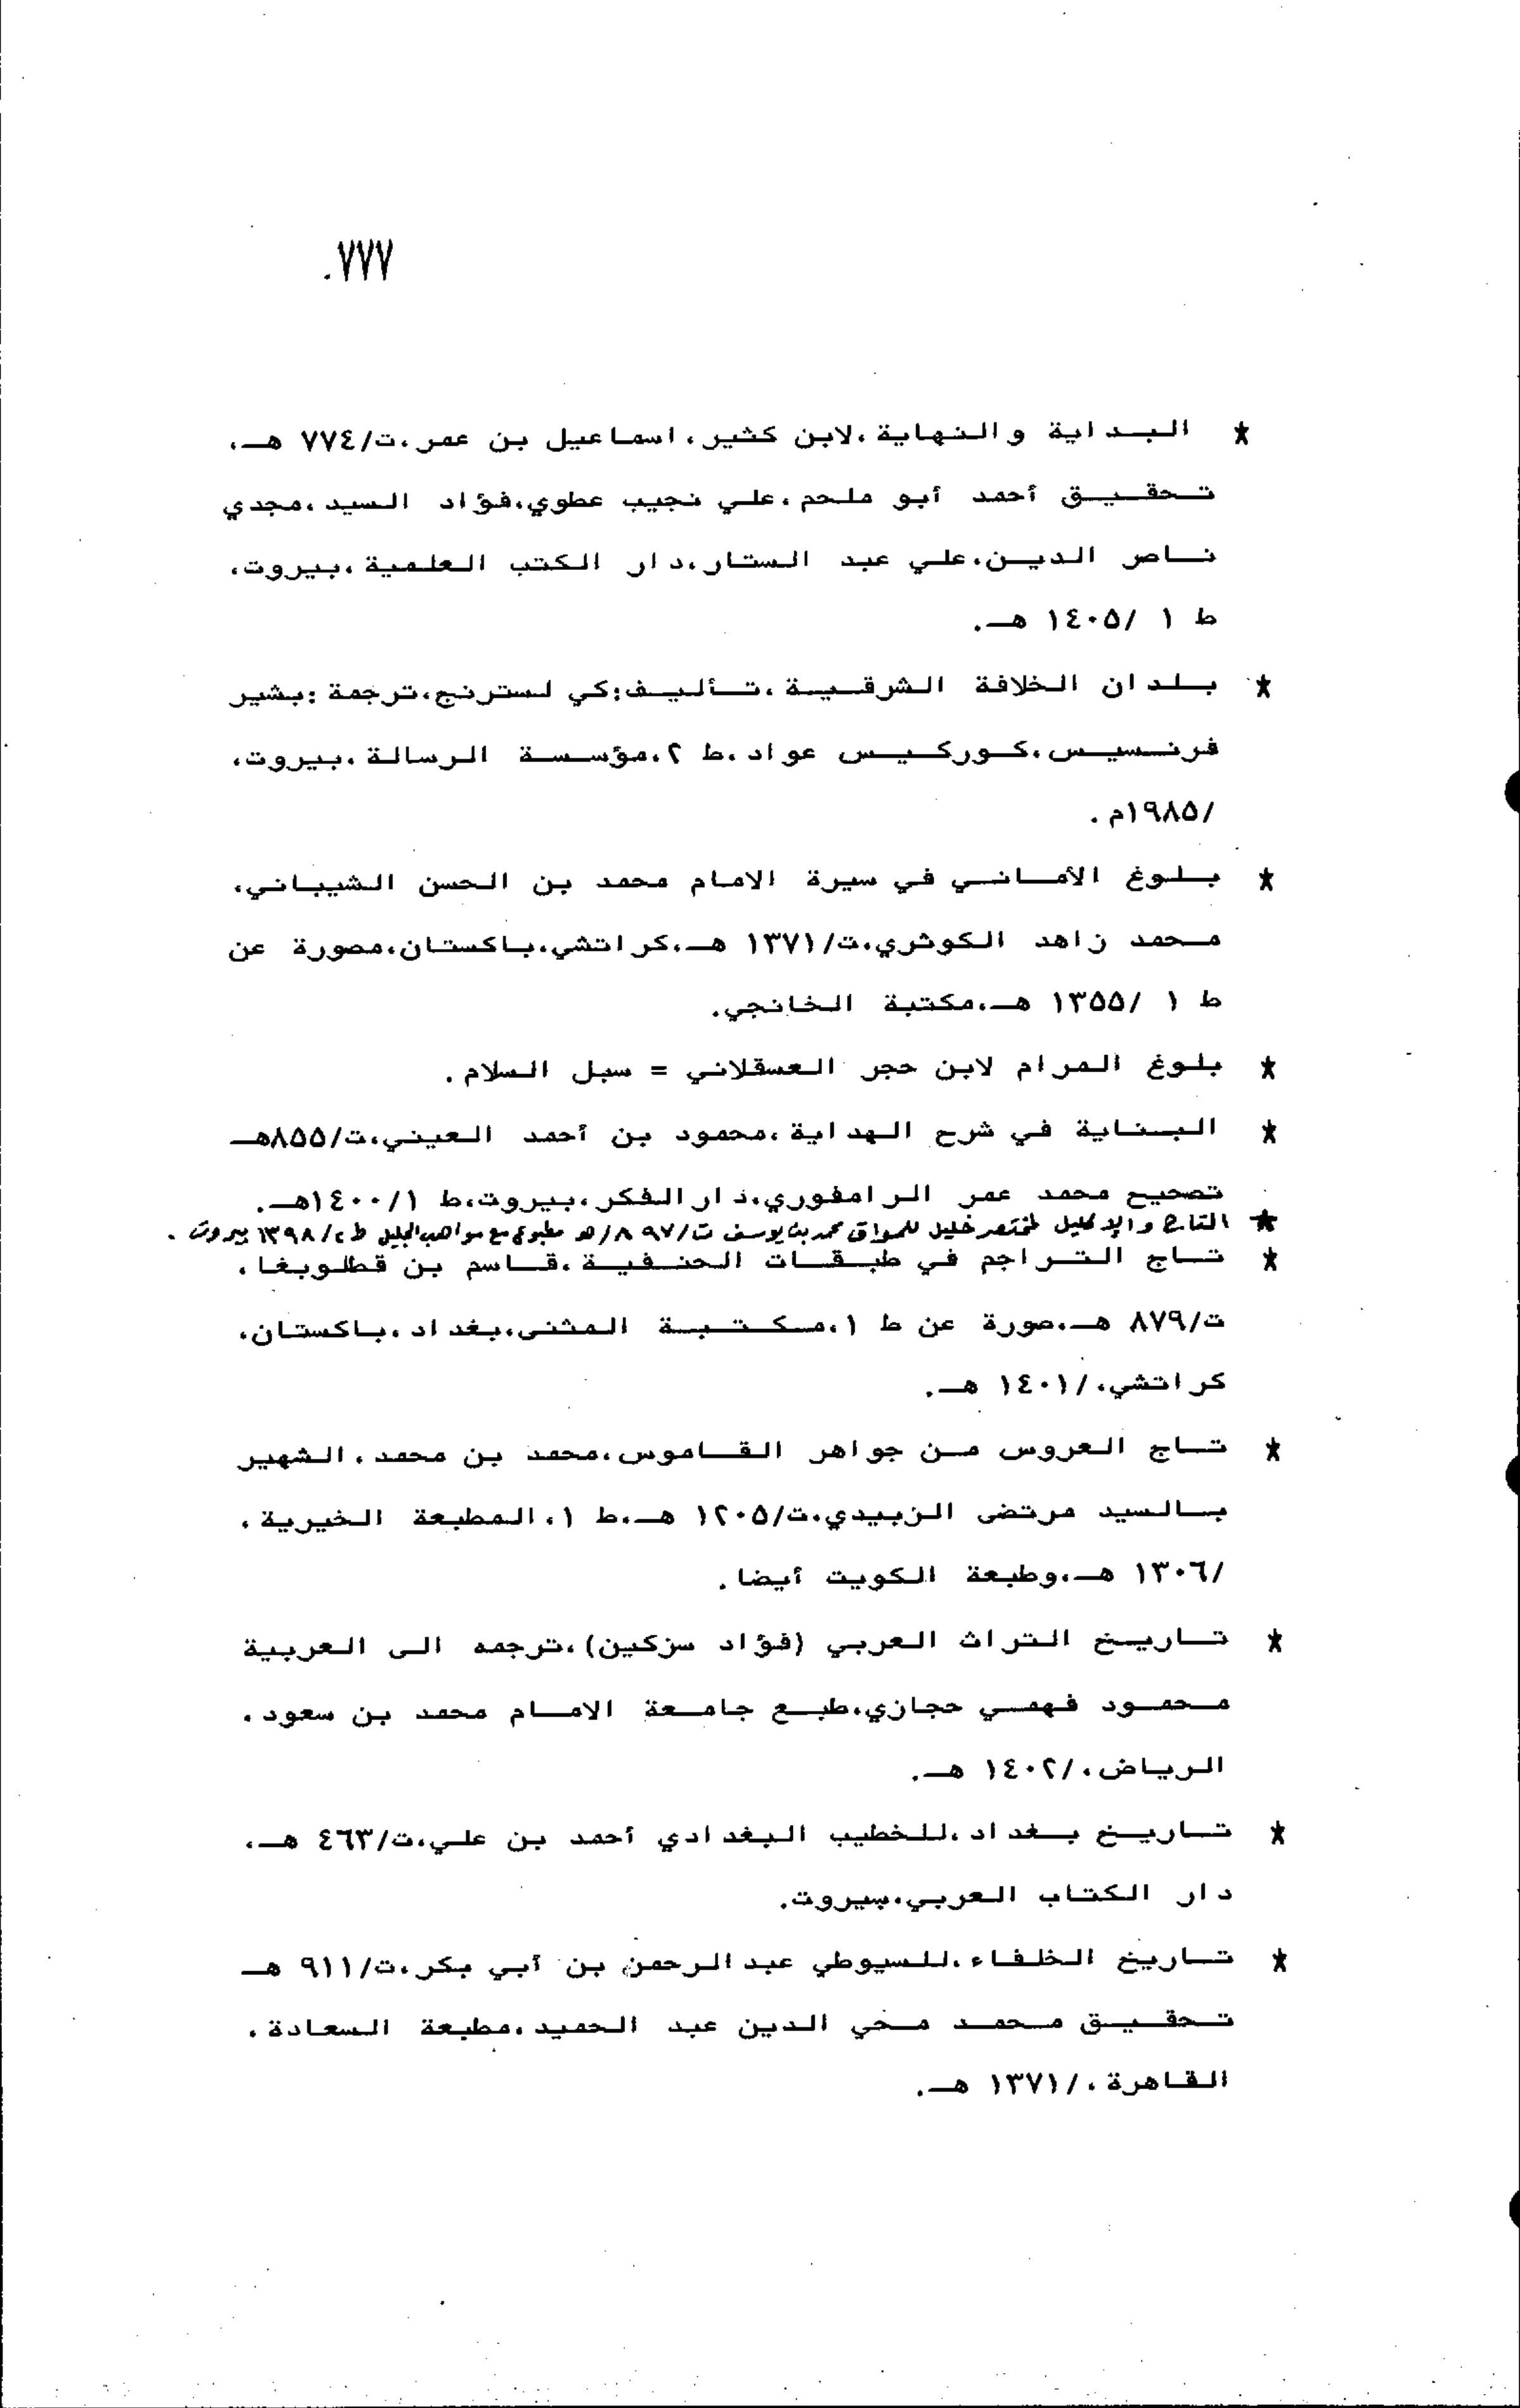 ٧٧٧.
★ البداية والنهاية ،لابن كثير، اسماعيل بن عمر،ت/٧٧٤ هـ،
تحقيق أحمد أبو ملحم ،علي نجيب عطوي،فؤاد السيد ،مجدي
ناصر الدين،علي عبد الستار،دار الكتب العلمية ،بيروت،
ط ١ /١٤٠٥ هـ.
★ بلدان الخلافة الشرقية ،تأليف:كي لسترنج،ترجمة :بشير
فرنسيس ،كوركيس عواد ،ط ٢،مؤسسة الرسالة ،بيروت،
/١٩٨٥م .
★ بلوغ الأماني في سيرة الامام محمد بن الحسن الشيباني،
محمد زاهد الكوثري،ت/١٣٧١ هـ،كراتشي،باكستان،مصورة عن
ط ١ /١٣٥٥ هـ،مكتبة الخانجي.
★ بلوغ المرام لابن حجر العسقلاني = سبل السلام .
★ البناية في شرح الهداية ،محمود بن أحمد العيني،ت/٨٥٥هـ
تصحيح محمد عمر الرامفوري،دار الفكر ،بيروت،ط ١٤٠٠/١هـ.
★ التاج والإكليل لمختصر خليل للمواق محمد بن يوسف ت/٨٩٧ هـ مطبوع مع مواهب الجليل ط ٢/١٣٩٨ بيروت .
★ تاج التراجم في طبقات الحنفية ،قاسم بن قطلوبغا ،
ت/٨٧٩ هـ،صورة عن ط ١،مكتبة المثنى،بغداد ،باكستان،
كراتشي، /١٤٠١ هـ.
★ تاج العروس من جواهر القاموس،محمد بن محمد ، الشهير
بالسيد مرتضى الزبيدي،ت/١٢٠٥ هـ،ط ١، المطبعة الخيرية ،
/١٣٠٦ هـ،وطبعة الكويت أيضا .
★ تاريخ التراث العربي (فؤاد سزكين)،ترجمه الى العربية
محمود فهمي حجازي،طبع جامعة الامام محمد بن سعود ،
الرياض، /١٤٠٢ هـ.
★ تاريخ بغداد ،للخطيب البغدادي أحمد بن علي،ت/٤٦٣ هـ،
دار الكتاب العربي،بيروت.
★ تاريخ الخلفاء ،للسيوطي عبد الرحمن بن أبي بكر،ت/٩١١ هـ
تحقيق محمد محي الدين عبد الحميد،مطبعة السعادة ،
القاهرة ، /١٣٧١ هـ.